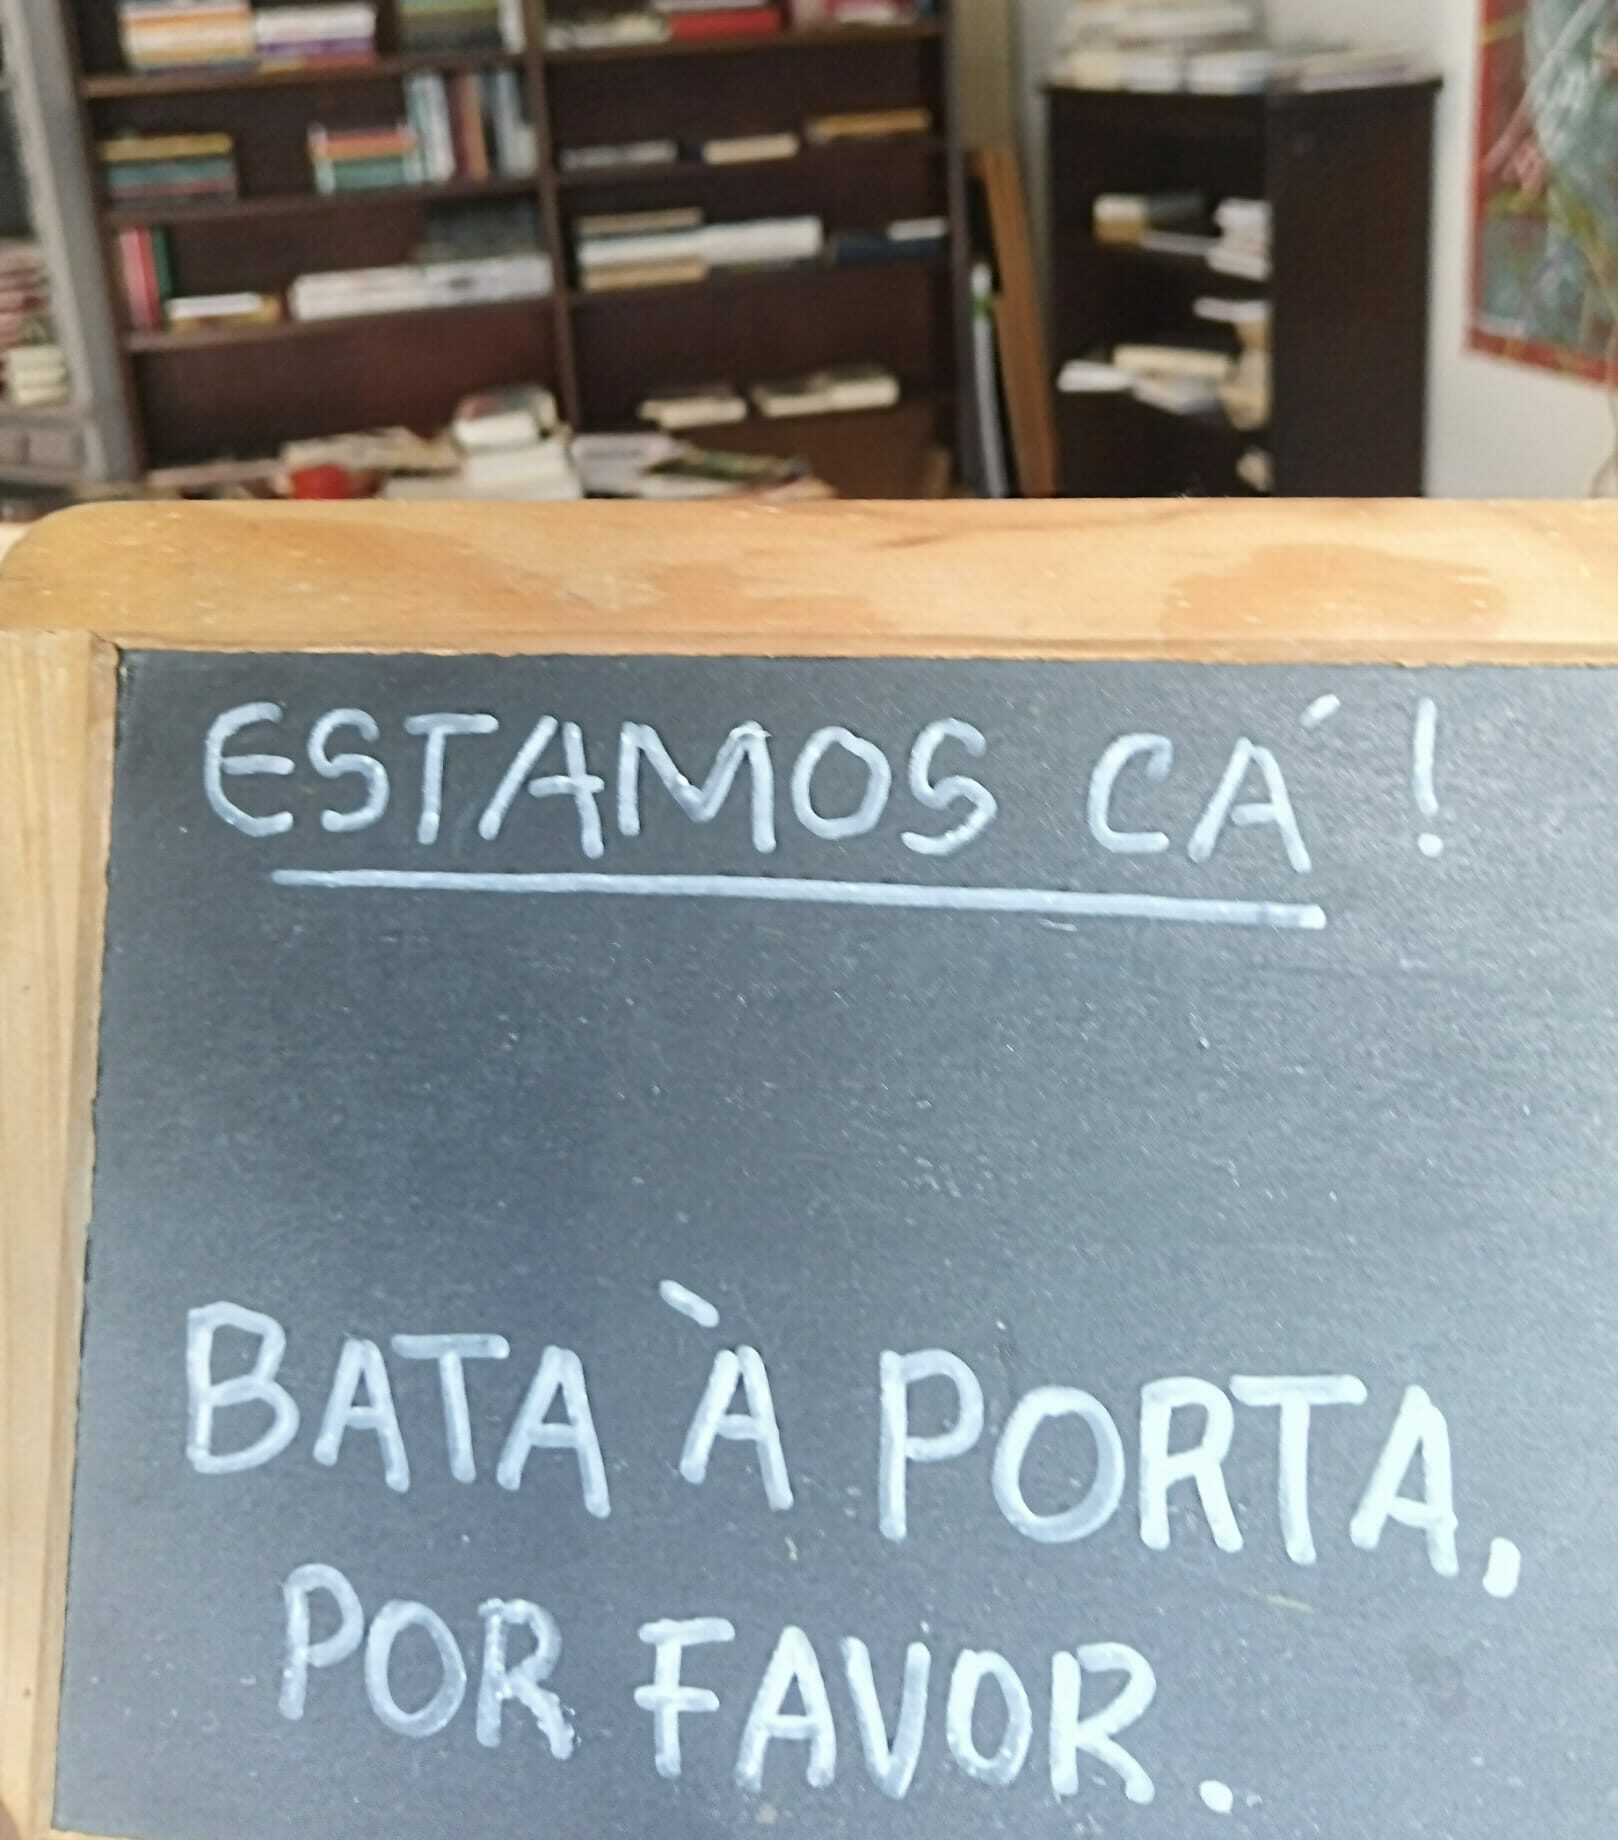 ESTAMOS CÁ!
BATA À PORTA,
POR FAVOR.